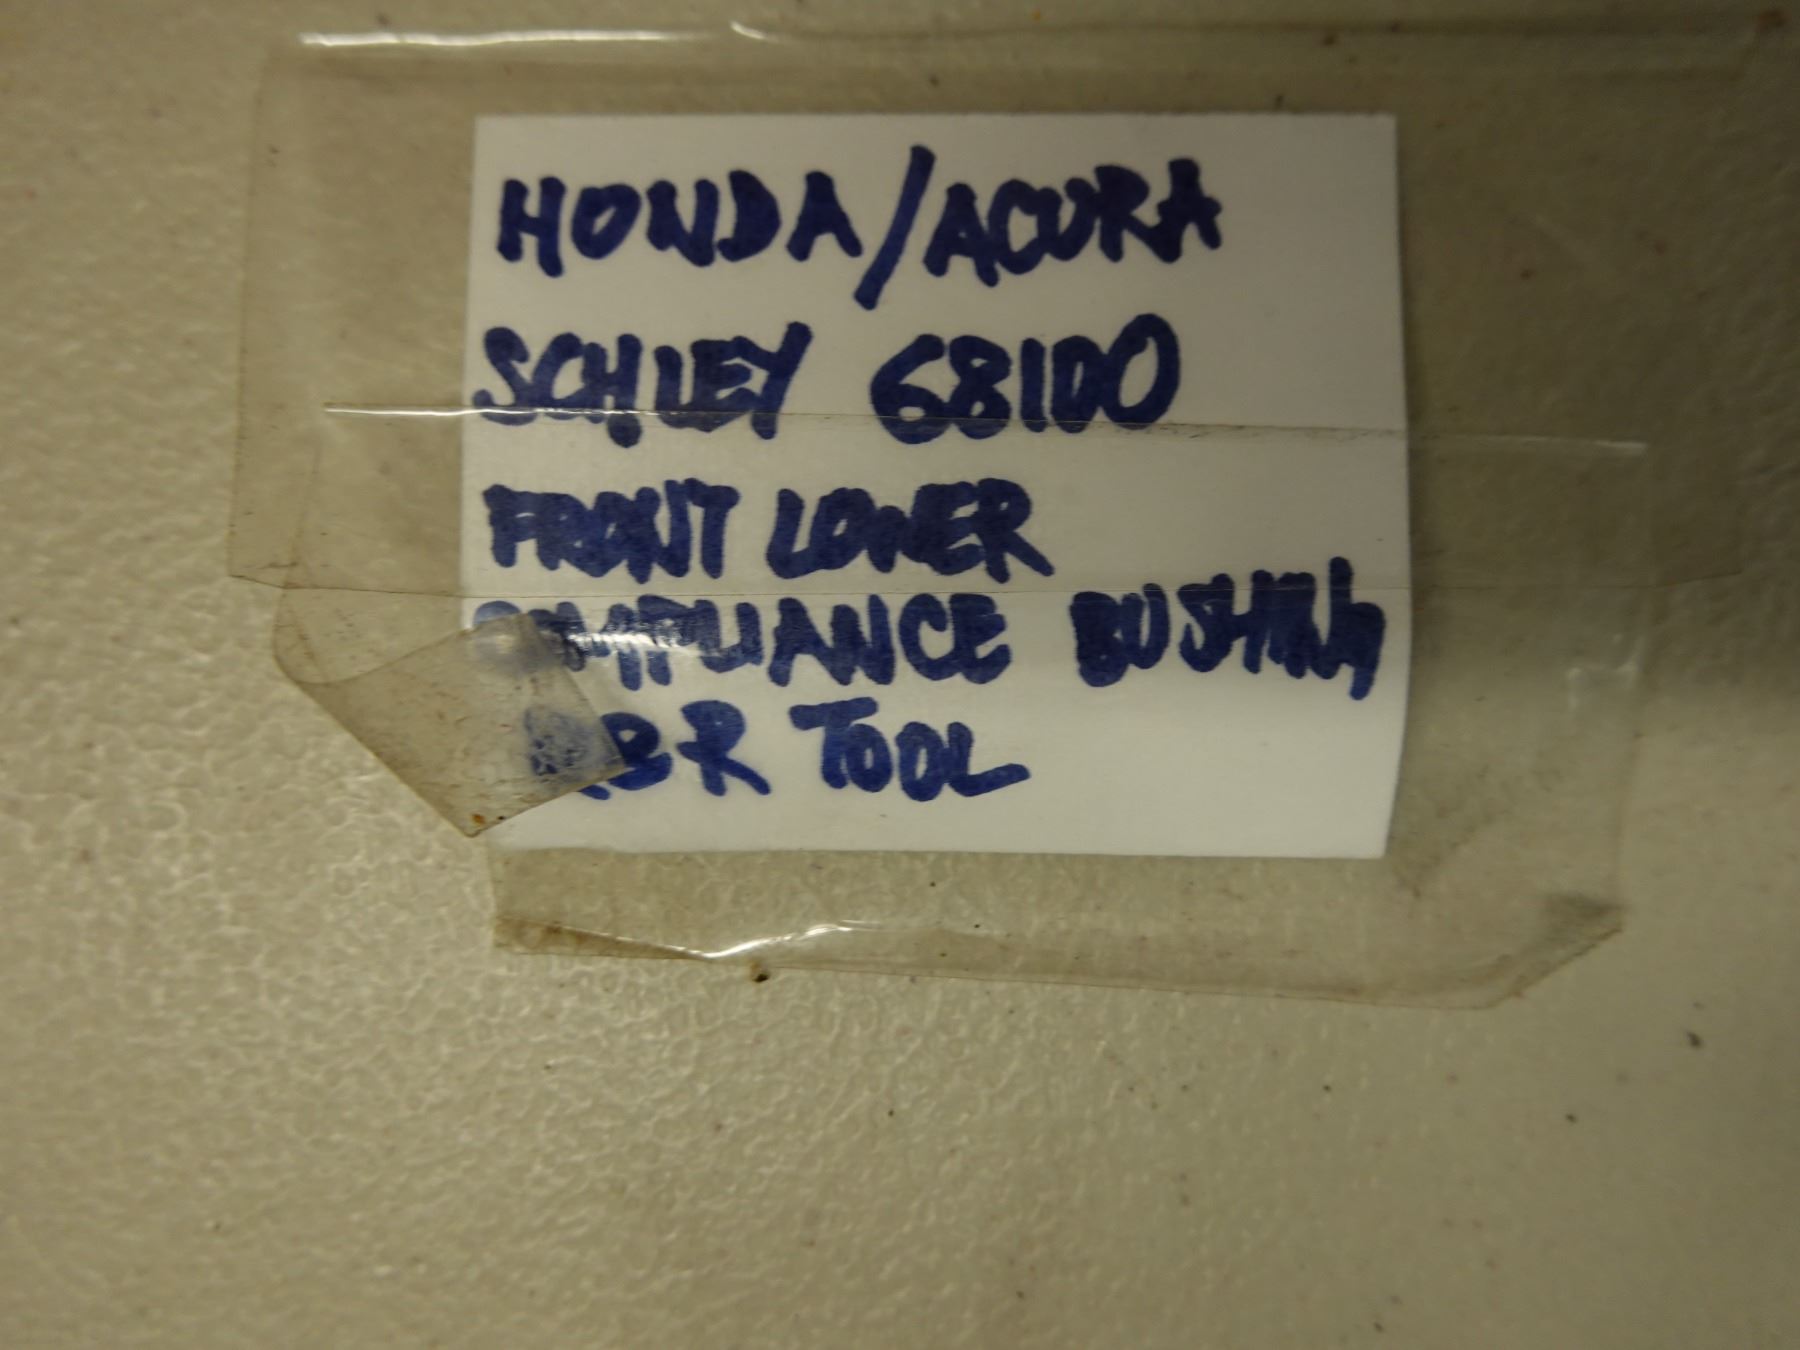 HONDA/ACURA
SCHLEY 68100
FRONT LOWER
COMPLIANCE BUSHING
R&R TOOL